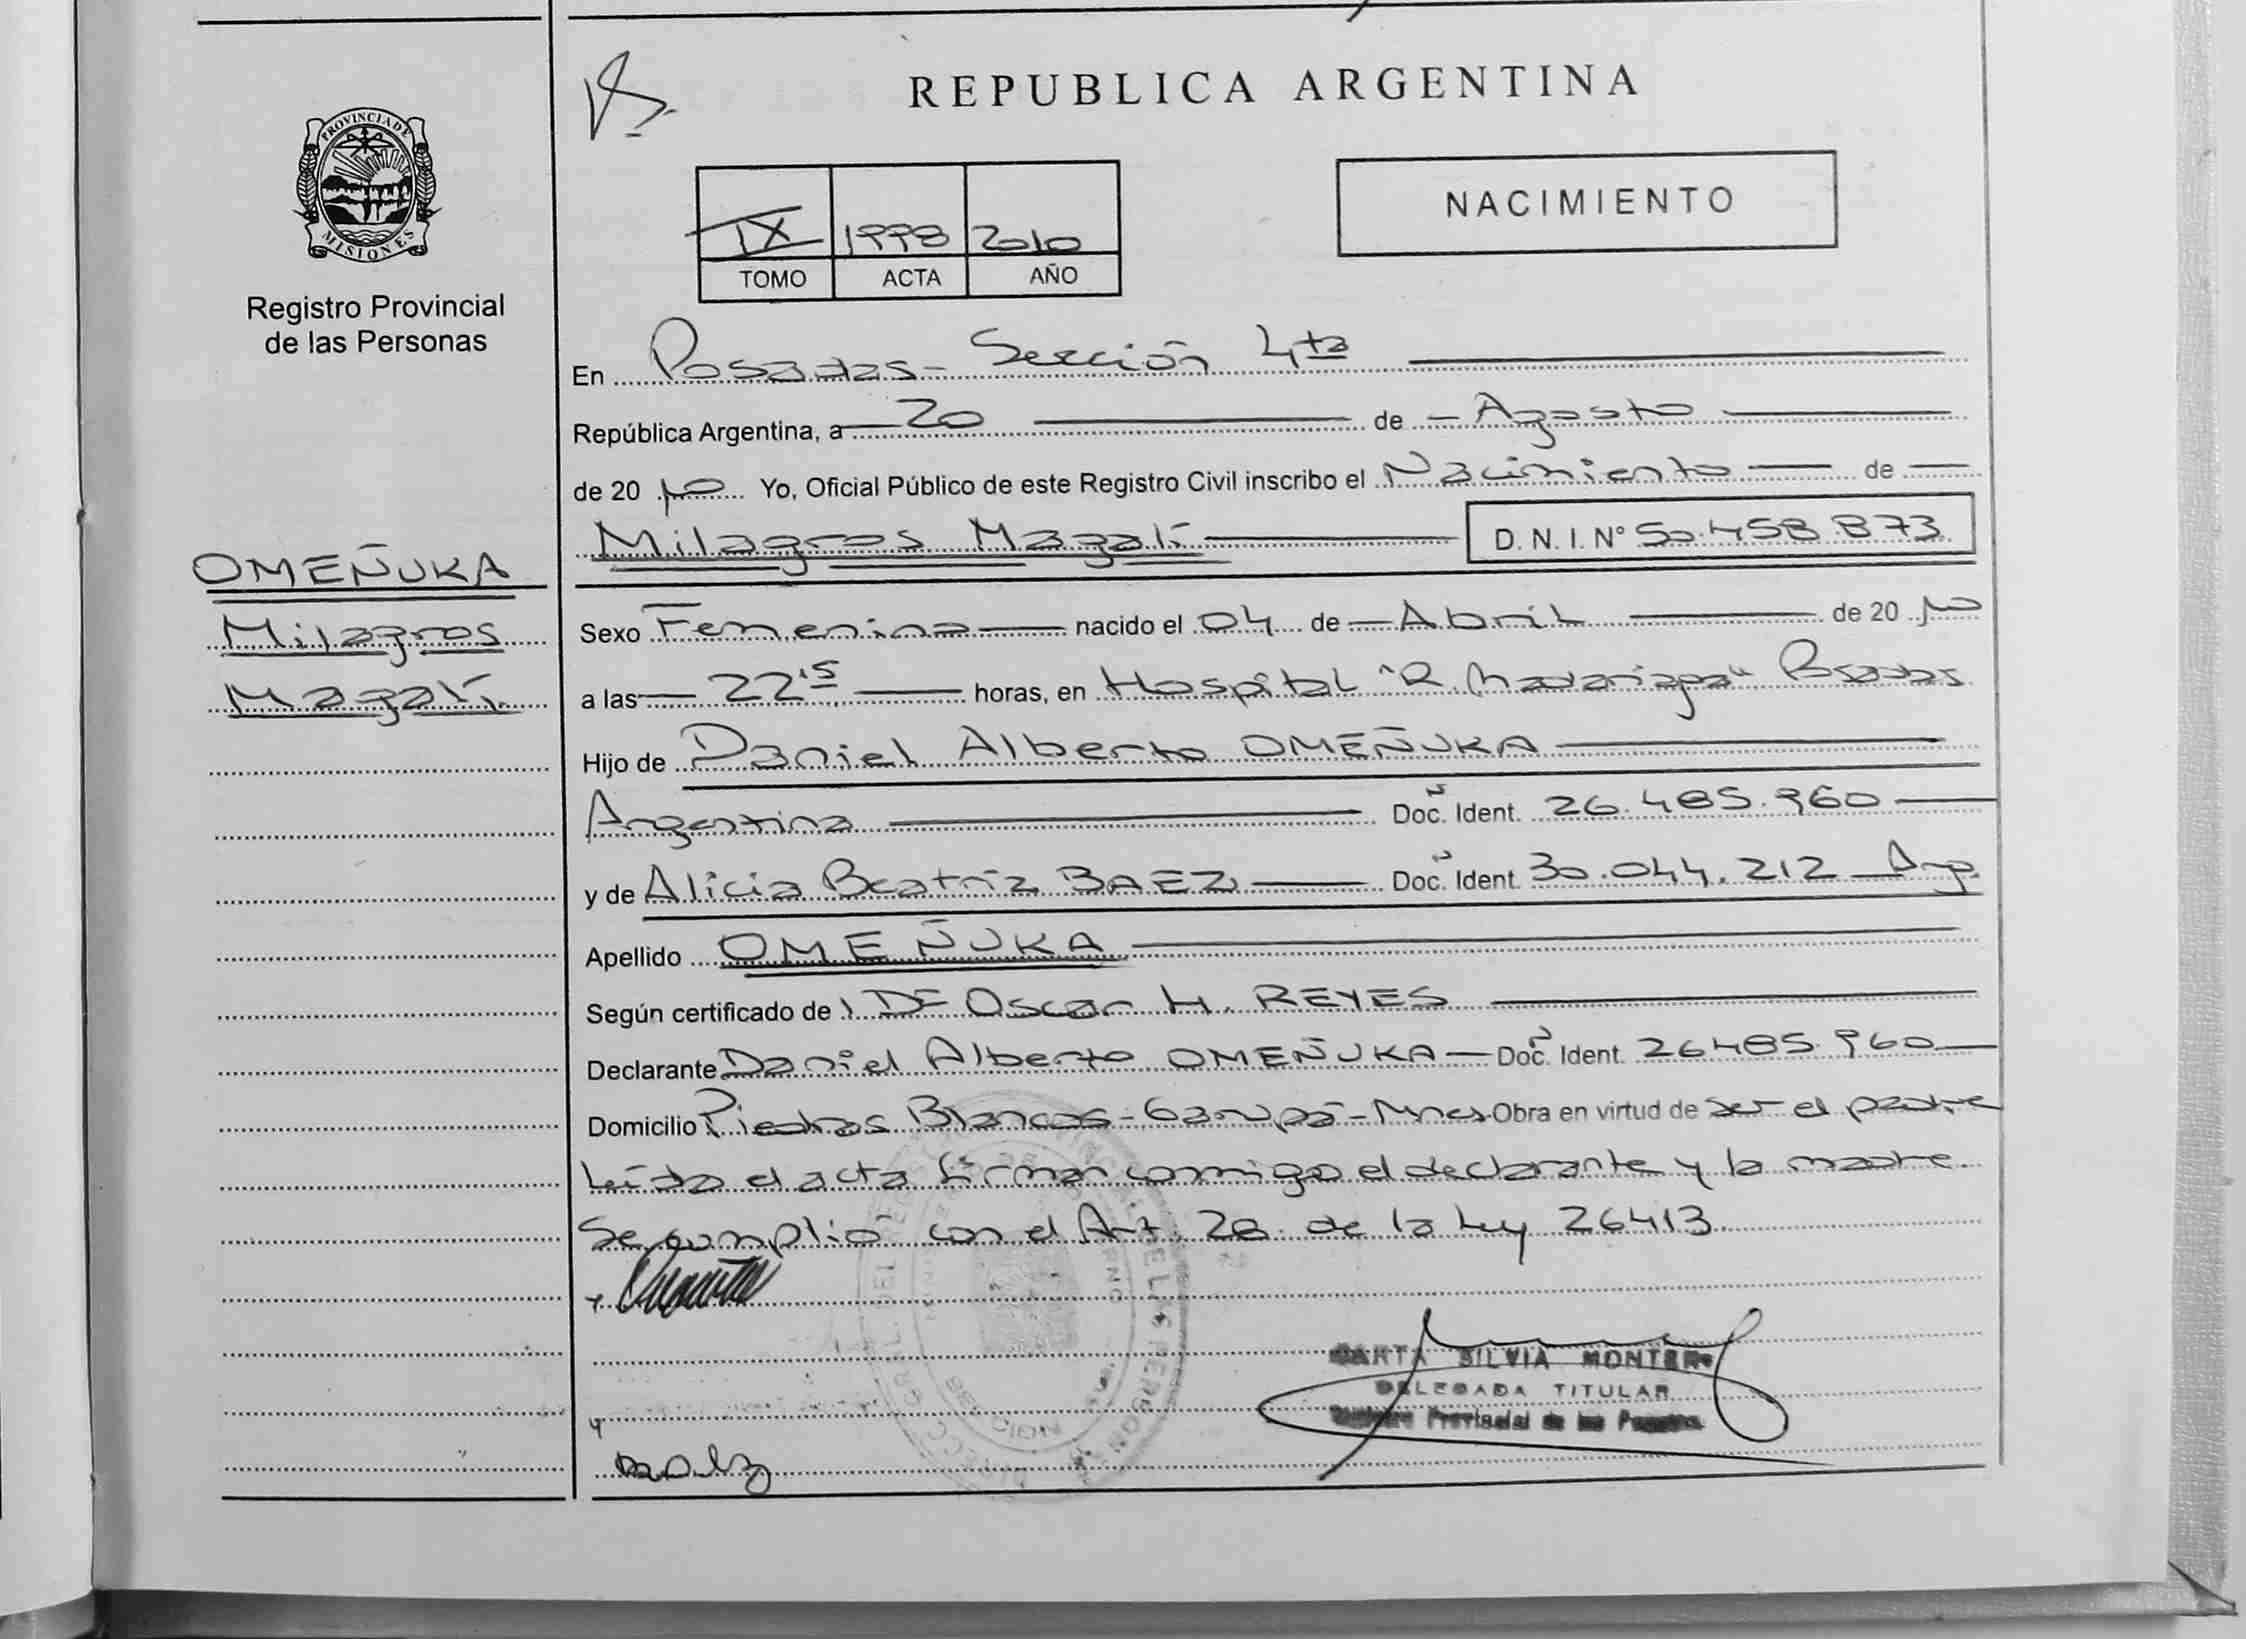 REPUBLICA ARGENTINA
PROVINCIA DE MISIONES
Registro Provincial
de las Personas
IX 1998 2010
TOMO ACTA AÑO
NACIMIENTO
En Posadas - Sección 4ta
República Argentina, a 20 de Agosto
de 2010 Yo, Oficial Público de este Registro Civil inscribo el Nacimiento de
Milagros Magalí D.N.I. N° 50.458.873
OMEÑUKA
Milagros
Magalí
Sexo Femenino nacido el 04 de Abril de 2010
a las 22'15 horas, en Hospital "R. Madariaga" Posadas
Hijo de Daniel Alberto OMEÑUKA
Argentina Doc. Ident. 26.485.960
y de Alicia Beatriz BAEZ Doc. Ident. 30.044.212 Arg.
Apellido OMEÑUKA
Según certificado de Oscar H. REYES
Declarante Daniel Alberto OMEÑUKA Doc. Ident. 26485.960
Domicilio Piedras Blancas - Garupá - Mnes Obra en virtud de ser el padre
Leída el acta firman conmigo el declarante y la madre.
Se cumplió con el Art. 28 de la Ley 26413
MARTA SILVIA MONTERO
DELEGADA TITULAR
Registro Provincial de las Personas